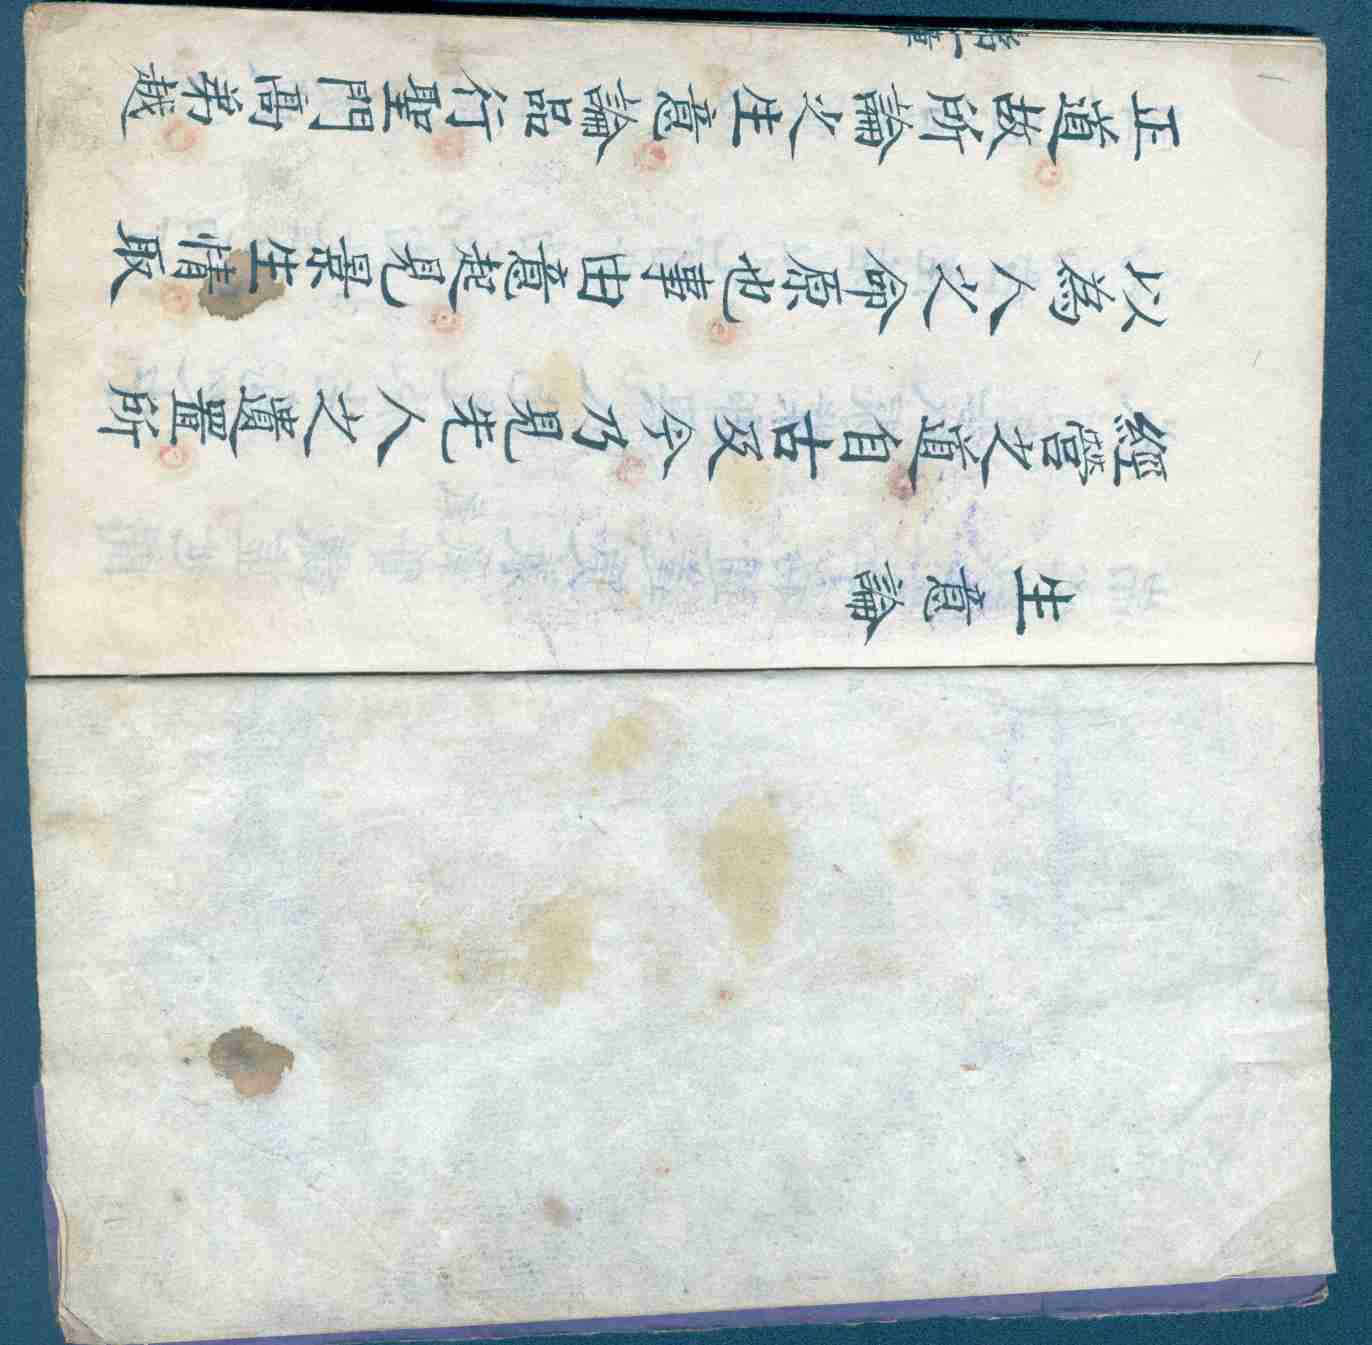 生意論
經營之道自古及今乃見先人之遺置所
以為人之命原也事由意起見景生情取
正道故所論之生意論品行聖門高弟越